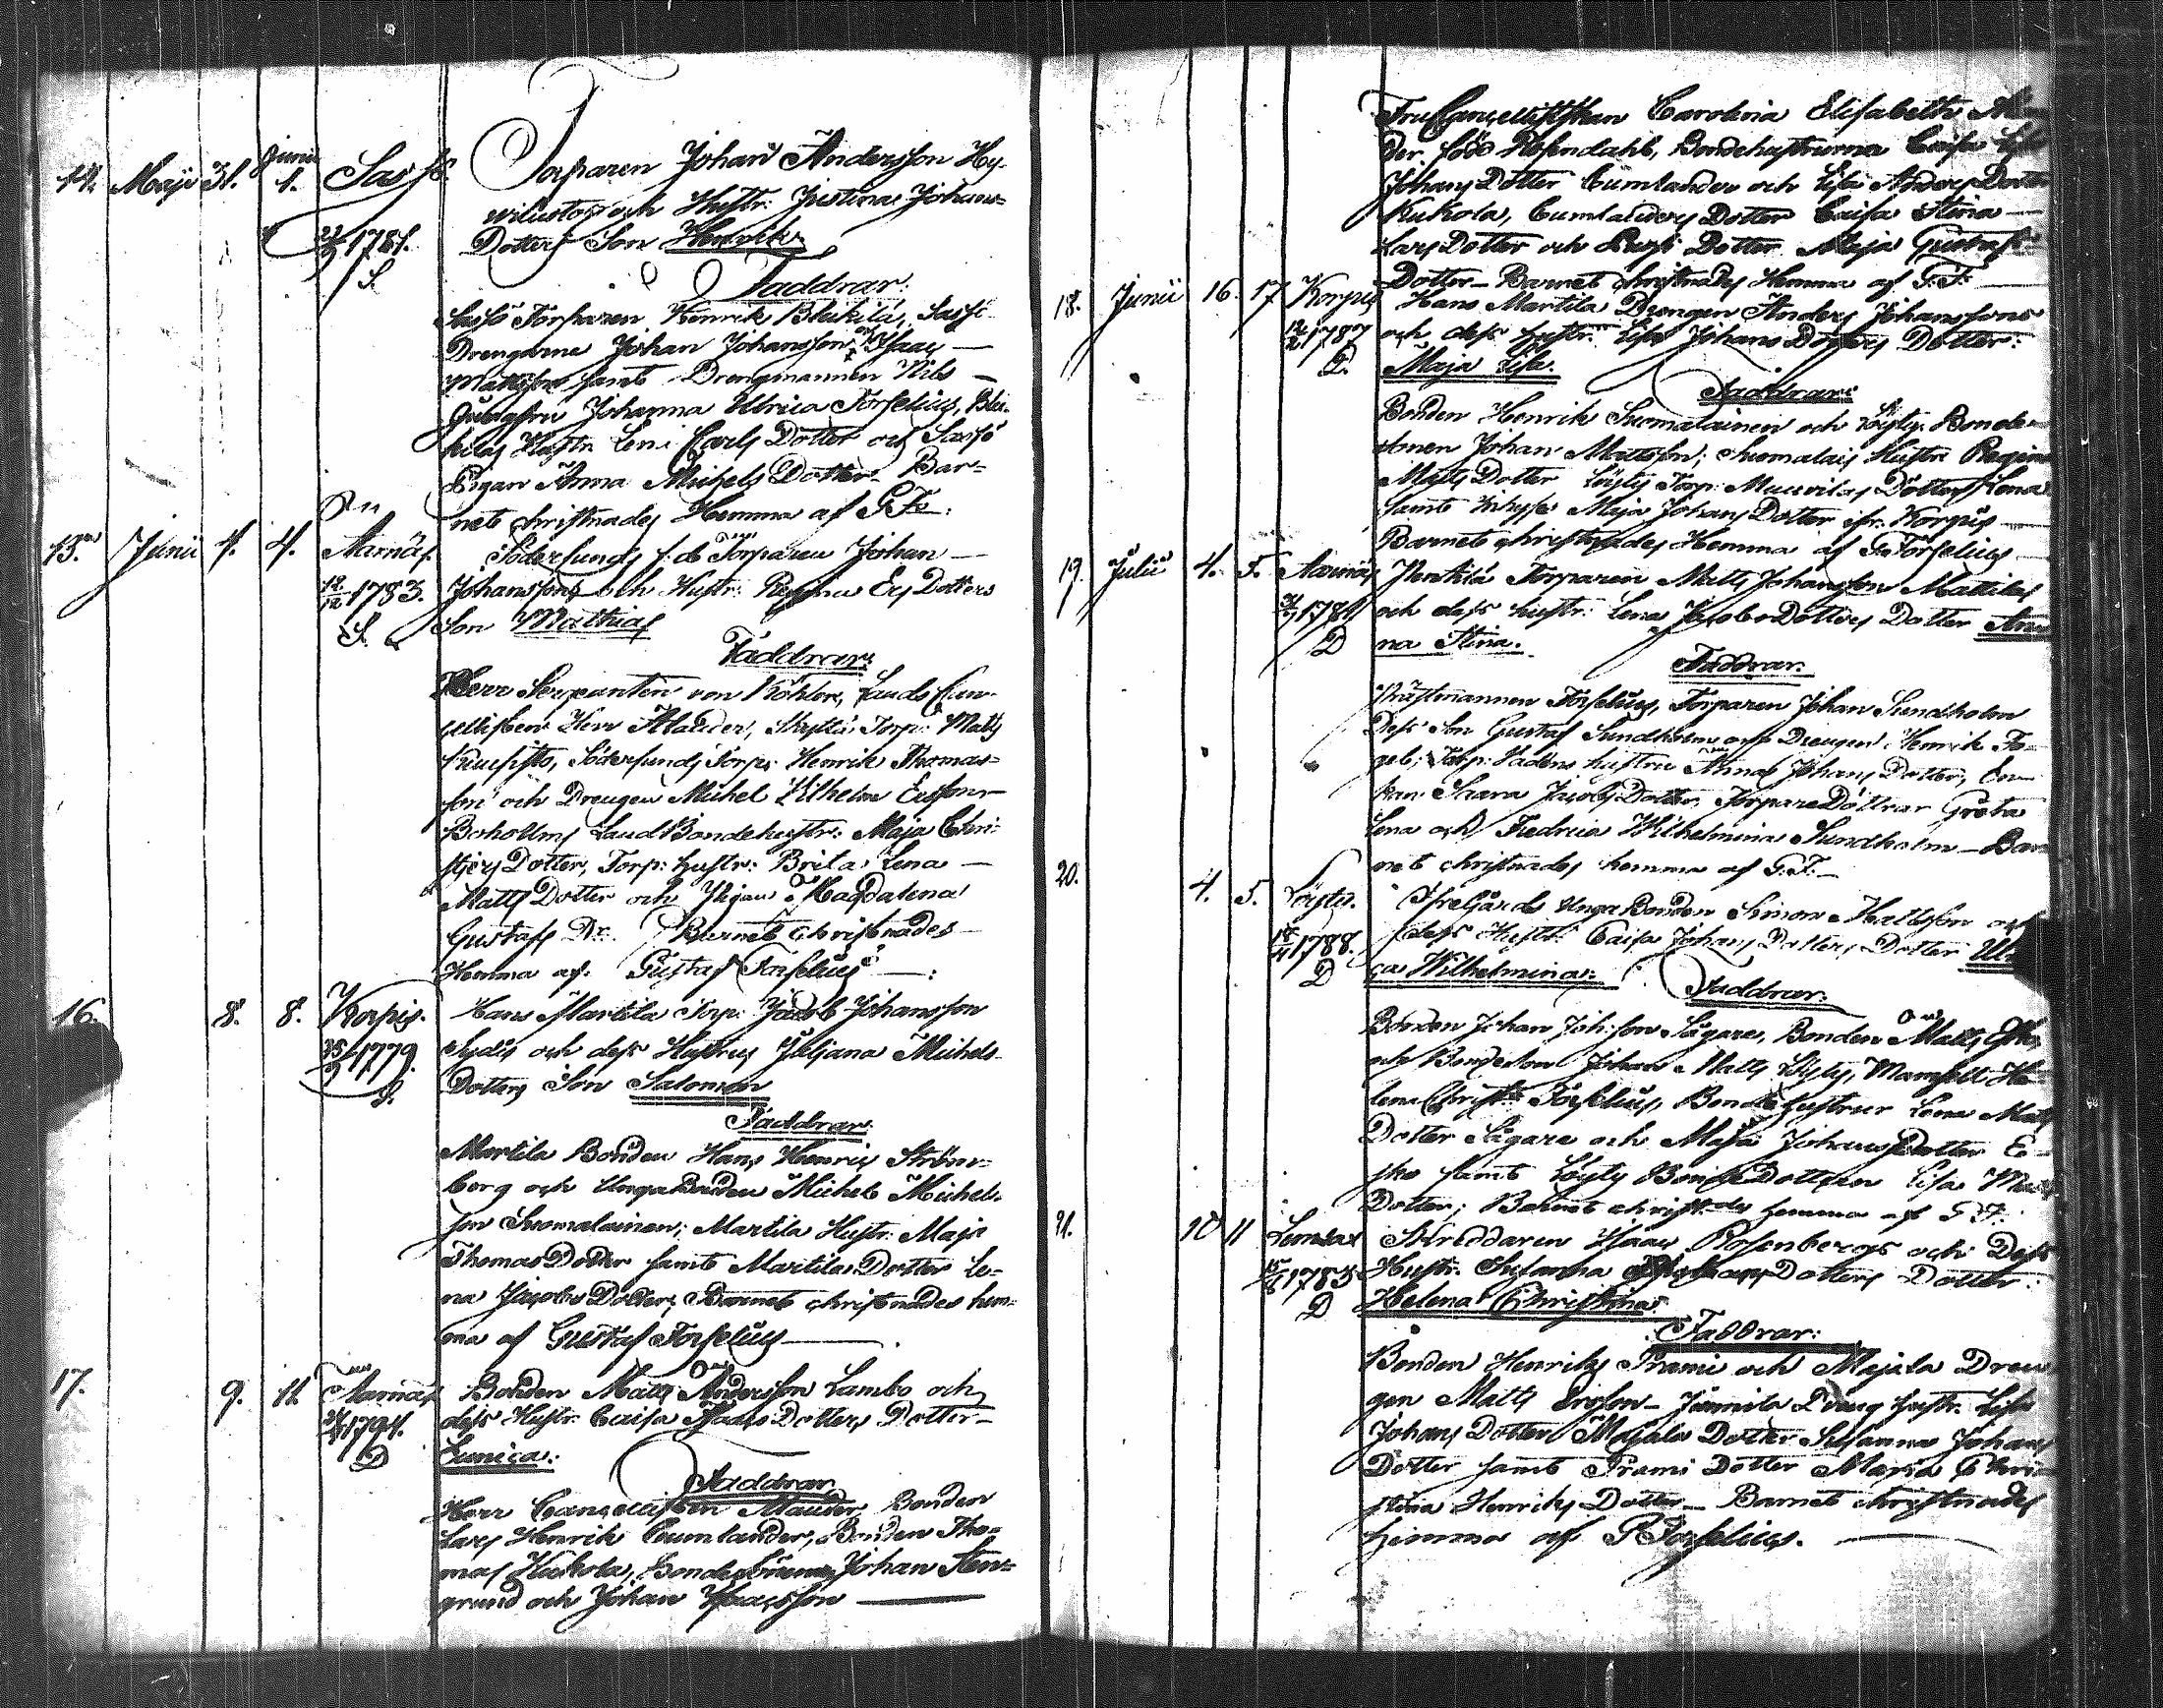 14. Maji 31. Junii 1. Torparen Johan Andersson Hy-
och Hustr: Justina Johans-
1781. Dotters Son Henrik
S.
Faddrar:
Torparen Henrik Blukila,
Drengarne Johan Johansson och Isaac
Mattsson samt Drengmannen Nils
Johanna Ulrica Forselius, Blu-
kilas Hustr. Lena Carls Dotter och
Pigan Anna Michels Dotter. Bar-
net christnades Hemma af G. F.
15. Junii 1. 4. Aarnäs. Södersunds f.d. Torparen Johan
12/12 1783. Johanssons och Hustr: Regina Ers Dotters
S. Son Mathias
Faddrar:
Herr Sergeanten von Köhler, Lands Can-
cellisten Herr Alander, Torp: Matts
Södersunds Torp: Henrik Thomas-
son och Drengen Michel Wilhelm Ersson
Boholms Landbondehustr: Maja Chri-
stjers Dotter, Torp: hustr: Brita Lena
Matts Dotter och Pigan Magdalena
Gustafs Dr. Barnet christnades
Hemma af Gustaf Forselius
16. 8. 8. Korpis. Hans Martila Torp: Jacob Johansson
1779. och dess Hustrus Juljana Michels
S. Dotters Son Salomon
Faddrar:
Martila Bonden Hans Henric Ström-
berg och Unga Bonden Michel Michels-
son Suomalainen; Martila Hustr. Maja
Thomas Dotter samt Martilas Dotter Le-
na Jacobs Dotter; Barnet christnades hem-
ma af Gustaf Forselius
17. 9. 11. Aarnäs Bonden Matts Andersson Lambo och
dess Hustr: Caisa Isaacs Dotters Dotter
D Eunica:
Faddrar
Herr Cancellisten Alander, Bonden
Lars Henrik Cumlander, Bonden Tho-
mas Kukola, Bondesönerne Johan Sten-
grund och Johan Isacsson
Fru Cancellistskan Carolina Elisabeth
der född Rosendahl, Bondehustrurna Caisa
Johans Dotter Cumlander och Lisa Anders Dotter
Kukola, Cumlanders Dotter Caisa Stina
Lars Dotter och Dotter Maja Gustafs
Dotter Barnet christnades Hemma af G. F.
18. Junii 16. 17 Korpis Hans Martila Drengen Anders Johanssons
12/2 1787 och dess hustr. Lisa Johans Dotters Dotter:
D. Maja Lisa.
Faddrar:
Bonden Henrik Suomalainen och Löytys Bonde-
sonen Johan Mattsson; Suomalais Hustr. Regina
Matts Dotter Löytys Torp: Dotter Lena
samt Maja Johans Dotter ifr. Korpis
Barnet christnades Hemma af G. Forselius
19. Julii 4. 5. Aarnäs Torparen Matts Johansson Mattilas
1789 och dess hustr: Lena Jacobs Dotters Dotter An-
D na Stina.
Faddrar:
Forselius, Torparen Johan Sundholm
Dess Son Gustaf Sundholm och Drengen Henrik Fo-
gel; Torp: hustru Anna Johans Dotter, En-
kan Saara Jacobs Dotter, Torpare Döttrar Greta
Lena och Fredrica Wilhelmina Sundholm Bar
net christnades hemma af G. F.
20. 4. 5. Löytis. Öfregårds Unga Bonden Simon Mattsson och
1788. dess Hustr: Caisa Johans Dotters Dotter Ul
D ca Wilhelmina:
Faddrar:
Bonden Johan Joh:son Sägare, Bonden Matts
och Bondeson Johan Matts Löytys, Mamsell He
lena Forselius, Bondehustrur Lena Matts
Dotter Sägare och Maja Johans Dotter E-
sko samt Löyty Bonde Dottren Lisa
Dotter; Barnet hemma af G. F.
21. 10 11 Skreddaren Isaac Rosenbergs och Dess
1783 Hustr. Susanna Dotters Dotter:
D Helena Christina
Faddrar:
Bonden Henriks Prami och Majala Dren
gen Matts Ersson Dreng hustr. Lisa
Johans Dotter Majala Dotter Susanna Johans
Dotter samt Prami Dotter Maria Chri
stina Henriks Dotter Barnet christnades
hemma af Forselius.